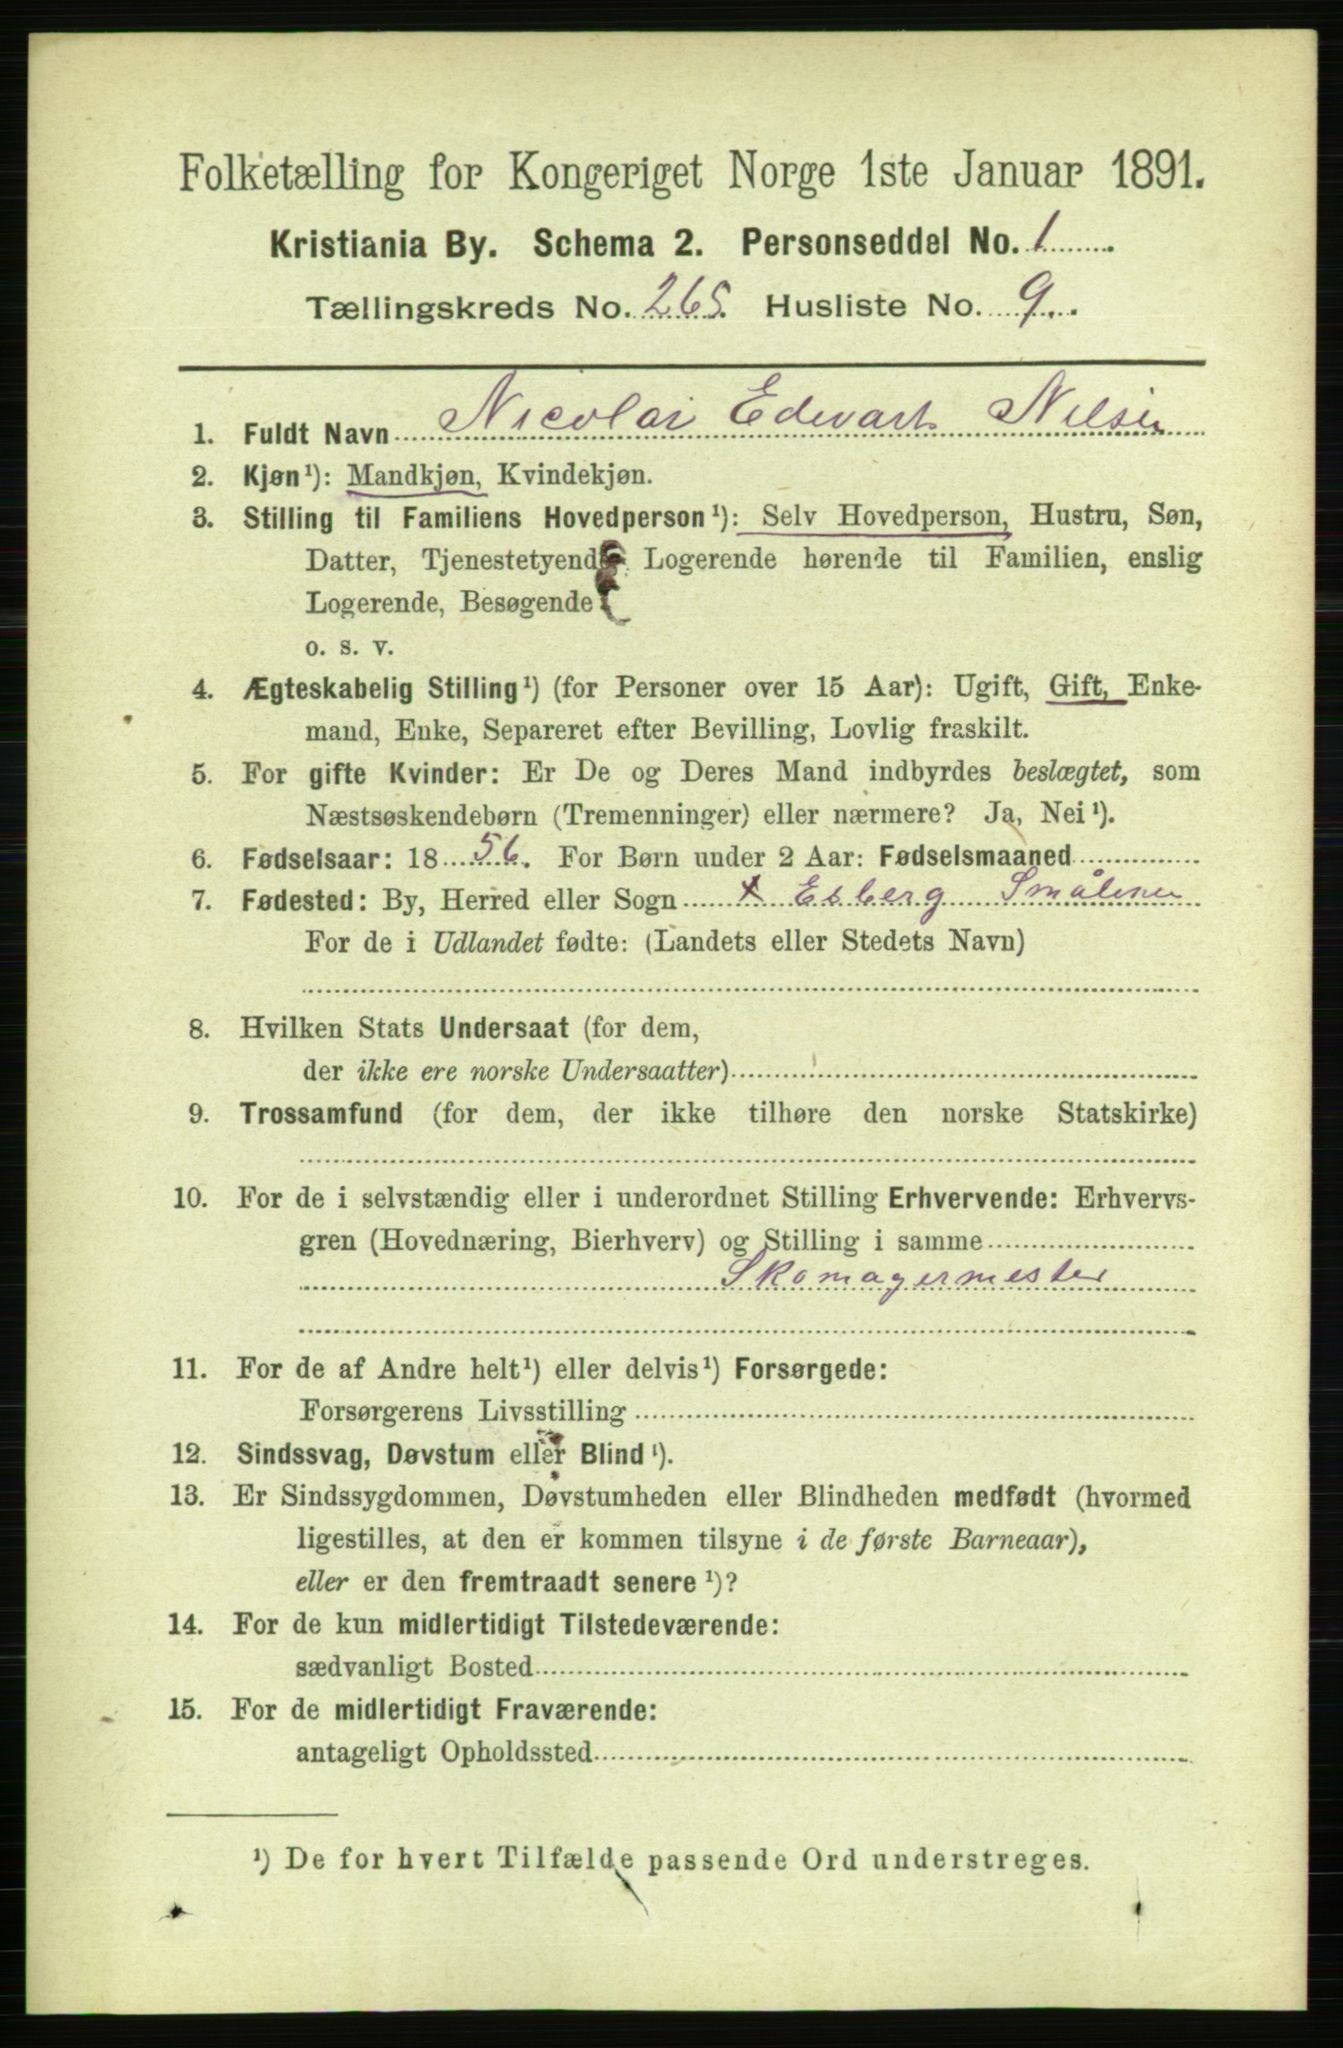 Folketælling for Kongeriget Norge 1ste Januar 1891.
Kristiania By. Schema 2. Personseddel No. 1
Tællingskreds No. 265. Husliste No. 9.
1. Fuldt Navn Nicolai Edvart Nilsen
2. Kjøn¹): Mandkjøn, Kvindekjøn.
3. Stilling til Familiens Hovedperson¹): Selv Hovedperson, Hustru, Søn,
Datter, Tjenestetyende, Logerende hørende til Familien, enslig
Logerende, Besøgende
o. s. v.
4. Ægteskabelig Stilling¹) (for Personer over 15 Aar): Ugift, Gift, Enke-
mand, Enke, Separeret efter Bevilling, Lovlig fraskilt.
5. For gifte Kvinder: Er De og Deres Mand indbyrdes beslægtet, som
Næstsøskendebørn (Tremenninger) eller nærmere? Ja, Nei¹).
6. Fødselsaar: 1856. For Børn under 2 Aar: Fødselsmaaned
7. Fødested: By, Herred eller Sogn x Esberg Smålene
For de i Udlandet fødte: (Landets eller Stedets Navn)
8. Hvilken Stats Undersaat (for dem,
der ikke ere norske Undersaatter)
9. Trossamfund (for dem, der ikke tilhøre den norske Statskirke)
10. For de i selvstændig eller i underordnet Stilling Erhvervende: Erhvervs-
gren (Hovednæring, Bierhverv) og Stilling i samme
Skomagermester
11. For de af Andre helt¹) eller delvis¹) Forsørgede:
Forsørgerens Livsstilling
12. Sindssvag, Døvstum eller Blind¹).
13. Er Sindssygdommen, Døvstumheden eller Blindheden medfødt (hvormed
ligestilles, at den er kommen tilsyne i de første Barneaar),
eller er den fremtraadt senere¹)?
14. For de kun midlertidigt Tilstedeværende:
sædvanligt Bosted
15. For de midlertidigt Fraværende:
antageligt Opholdssted
¹) De for hvert Tilfælde passende Ord understreges.